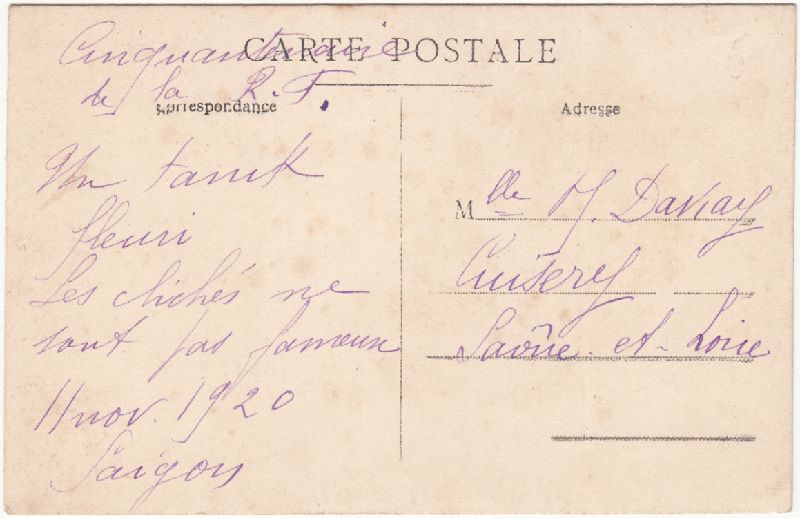 CARTE POSTALE
Cinquantenaire
de la R.F.
Correspondance
Un tank
fleuri
Les clichés ne
sont pas fameux
11 nov. 1920
Saïgon
Adresse
Mlle M.
Cuisery
Saône-et-Loire
5